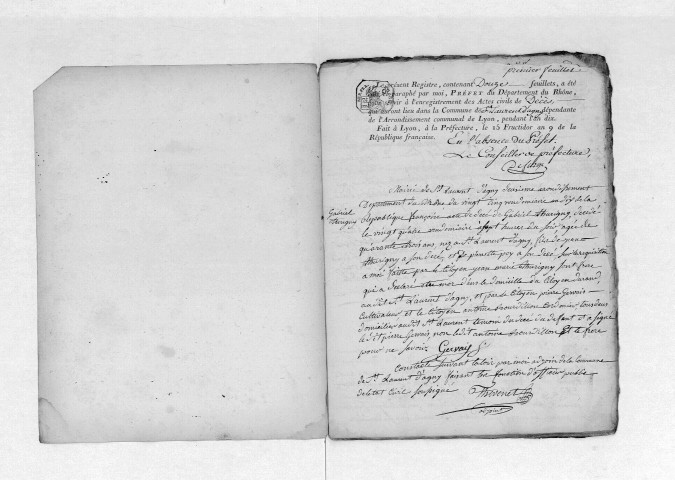 premier feuillet
Le présent Registre, contenant Douze feuillets, a été
paraphé par moi, PRÉFET du Département du Rhône,
pour servir à l'enregistrement des Actes civils de Décès
qui auront lieu dans la Commune de St Laurent d'agny dépendante
de l'Arrondissement communal de Lyon, pendant l'an dix.
Fait à Lyon, à la Préfecture, le 15 Fructidor an 9 de la
République française. En l'absence du Préfet.
Le Conseiller de préfecture,
Mairie de St Laurent d'agny arrondissement
Departement du Rhône du vingt cinq vendemiaire an dix de la
Gabriel
Republique françoise acte de decé de Gabriel decedé
le vingt quatre vendemiaire a sept heures du soir agé de
quarante trois ans, né a St Laurent d'agny, fils de
a son decé, et de a son decé sur la requisition
a moi faitte par le Citoyen jean marie son frere
qui a declaré etre mor dans le domicille du Citoyen durand
audit St Laurent d'agny, et par le Citoyen pierre Gervais
Cultivateur et le Citoyen antoine Cordonier tous deux
domiciliés audit St Laurent temoin du decé du defunt et a signé
le dit pierre Gervais non le dit antoine et le frere
pour ne savoir Gervais
Constaté suivant la loi par moi adjoin de la Commune
de St Laurent d'agny faisant les fonction d'officier public
de l'etat civil soussigné Thevenet
adjoint